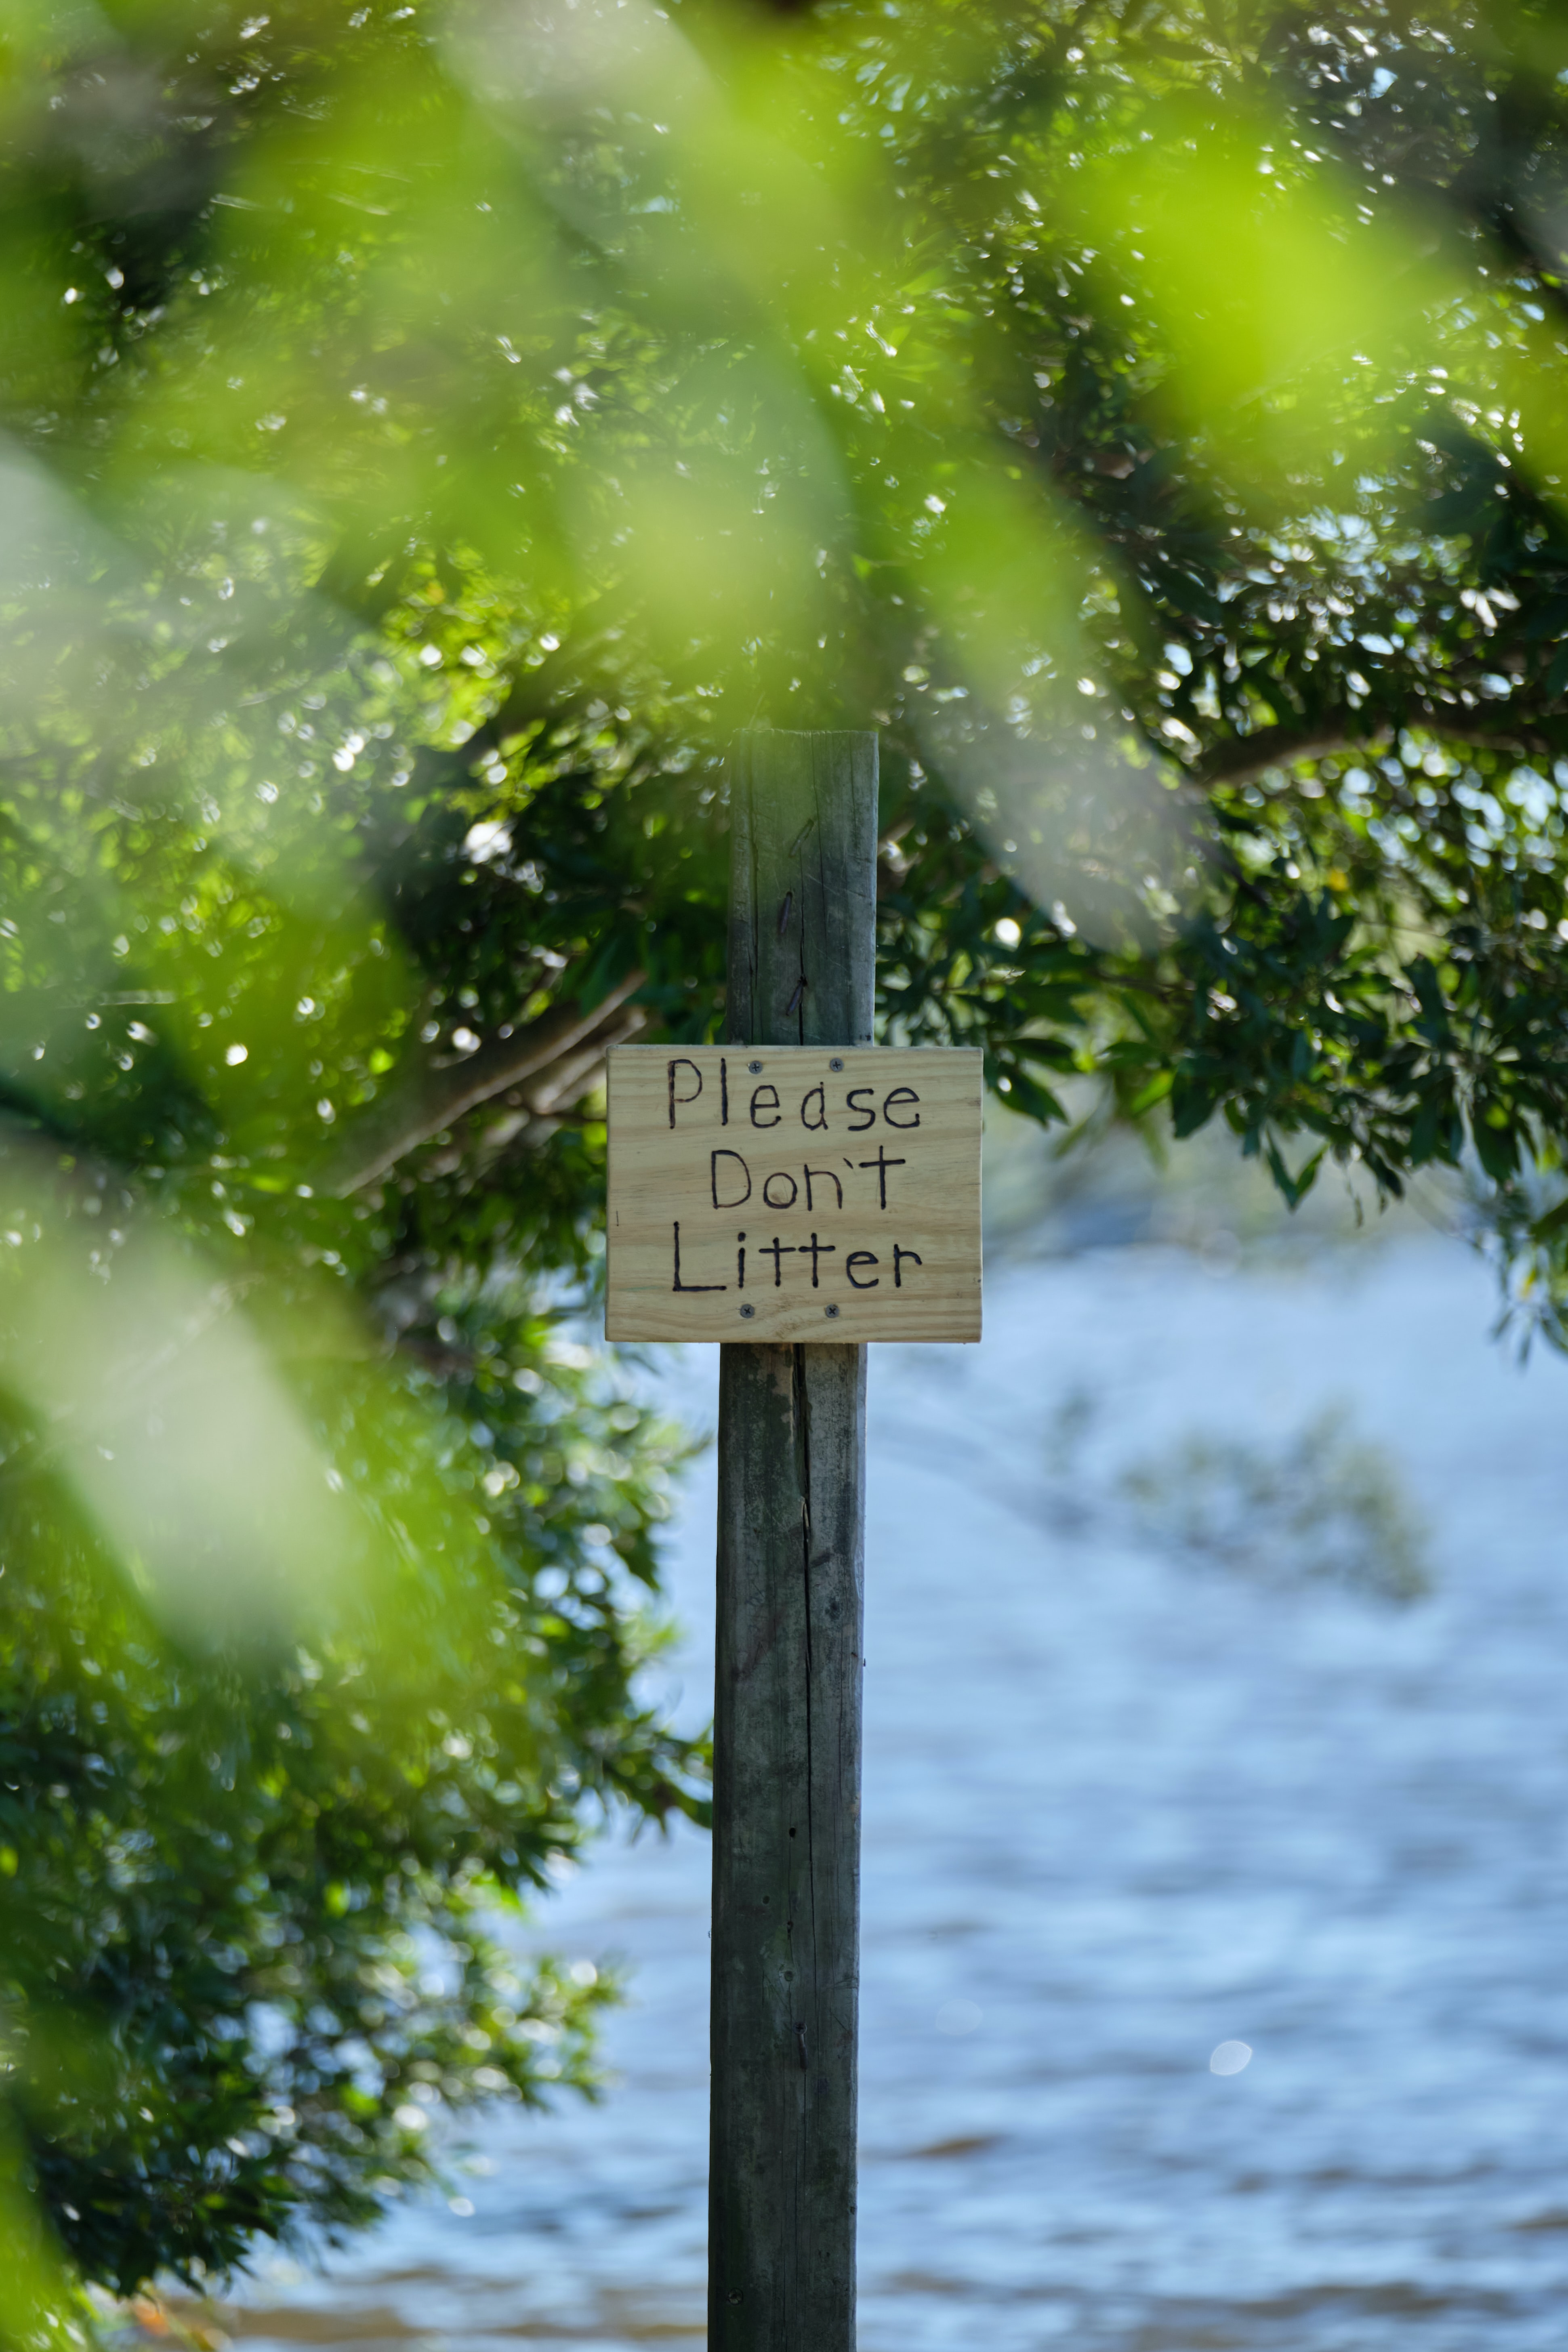 Please
Don't
Litter